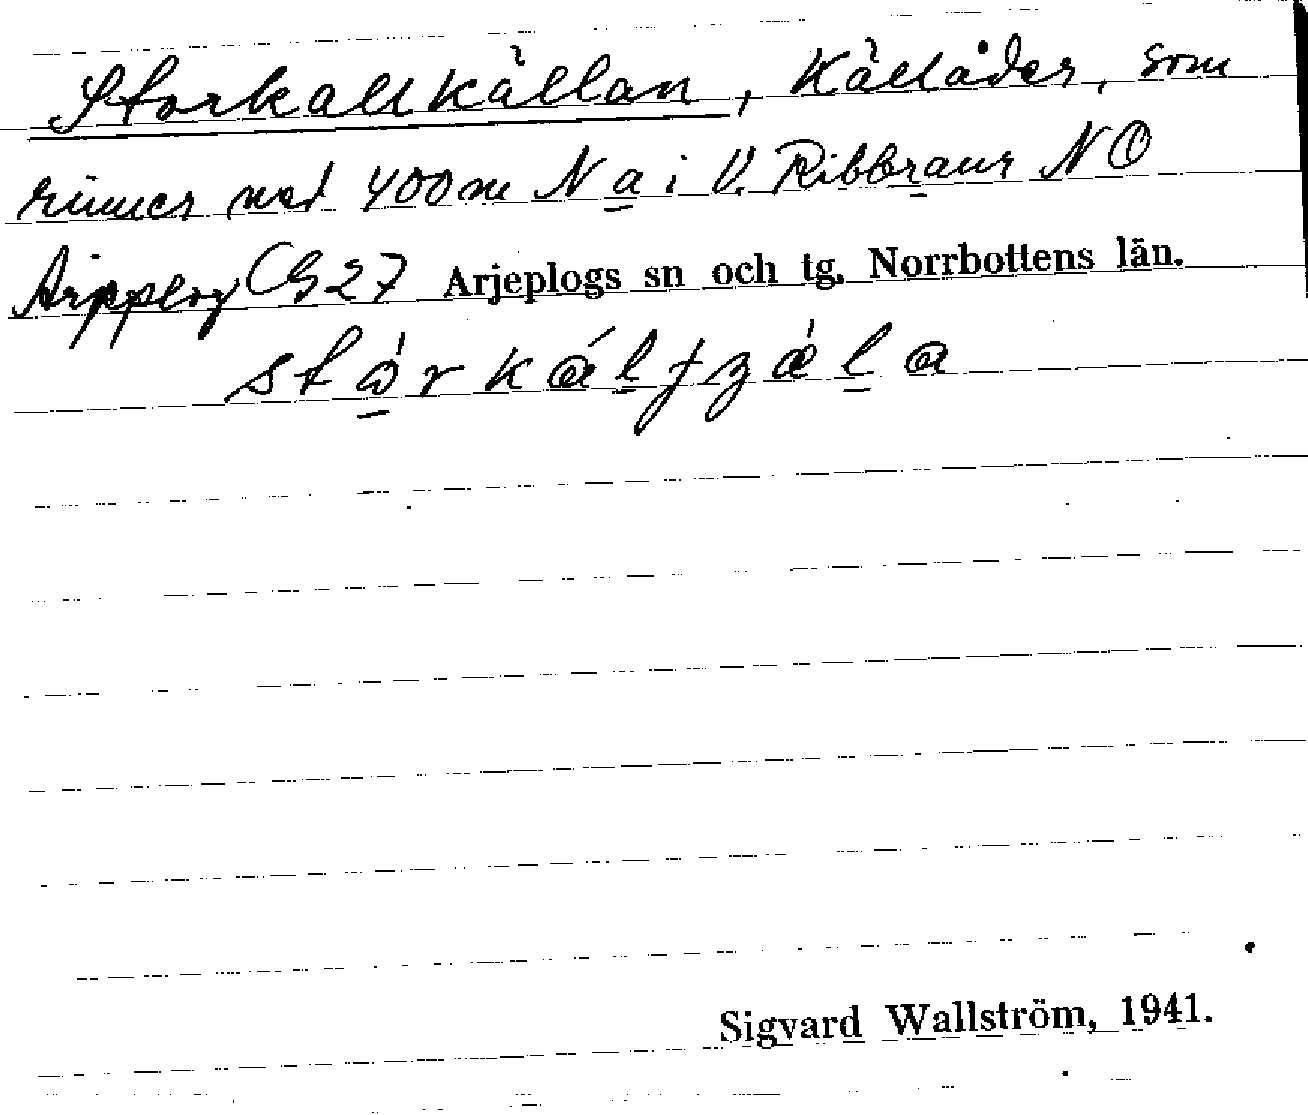 Storkallkällan, Källåder, som
rinner ned 400m N a i V. Ribbraur NO
Arjeplog CG 27 Arjeplogs sn och tg. Norrbottens län.
Sigvard Wallström, 1941.